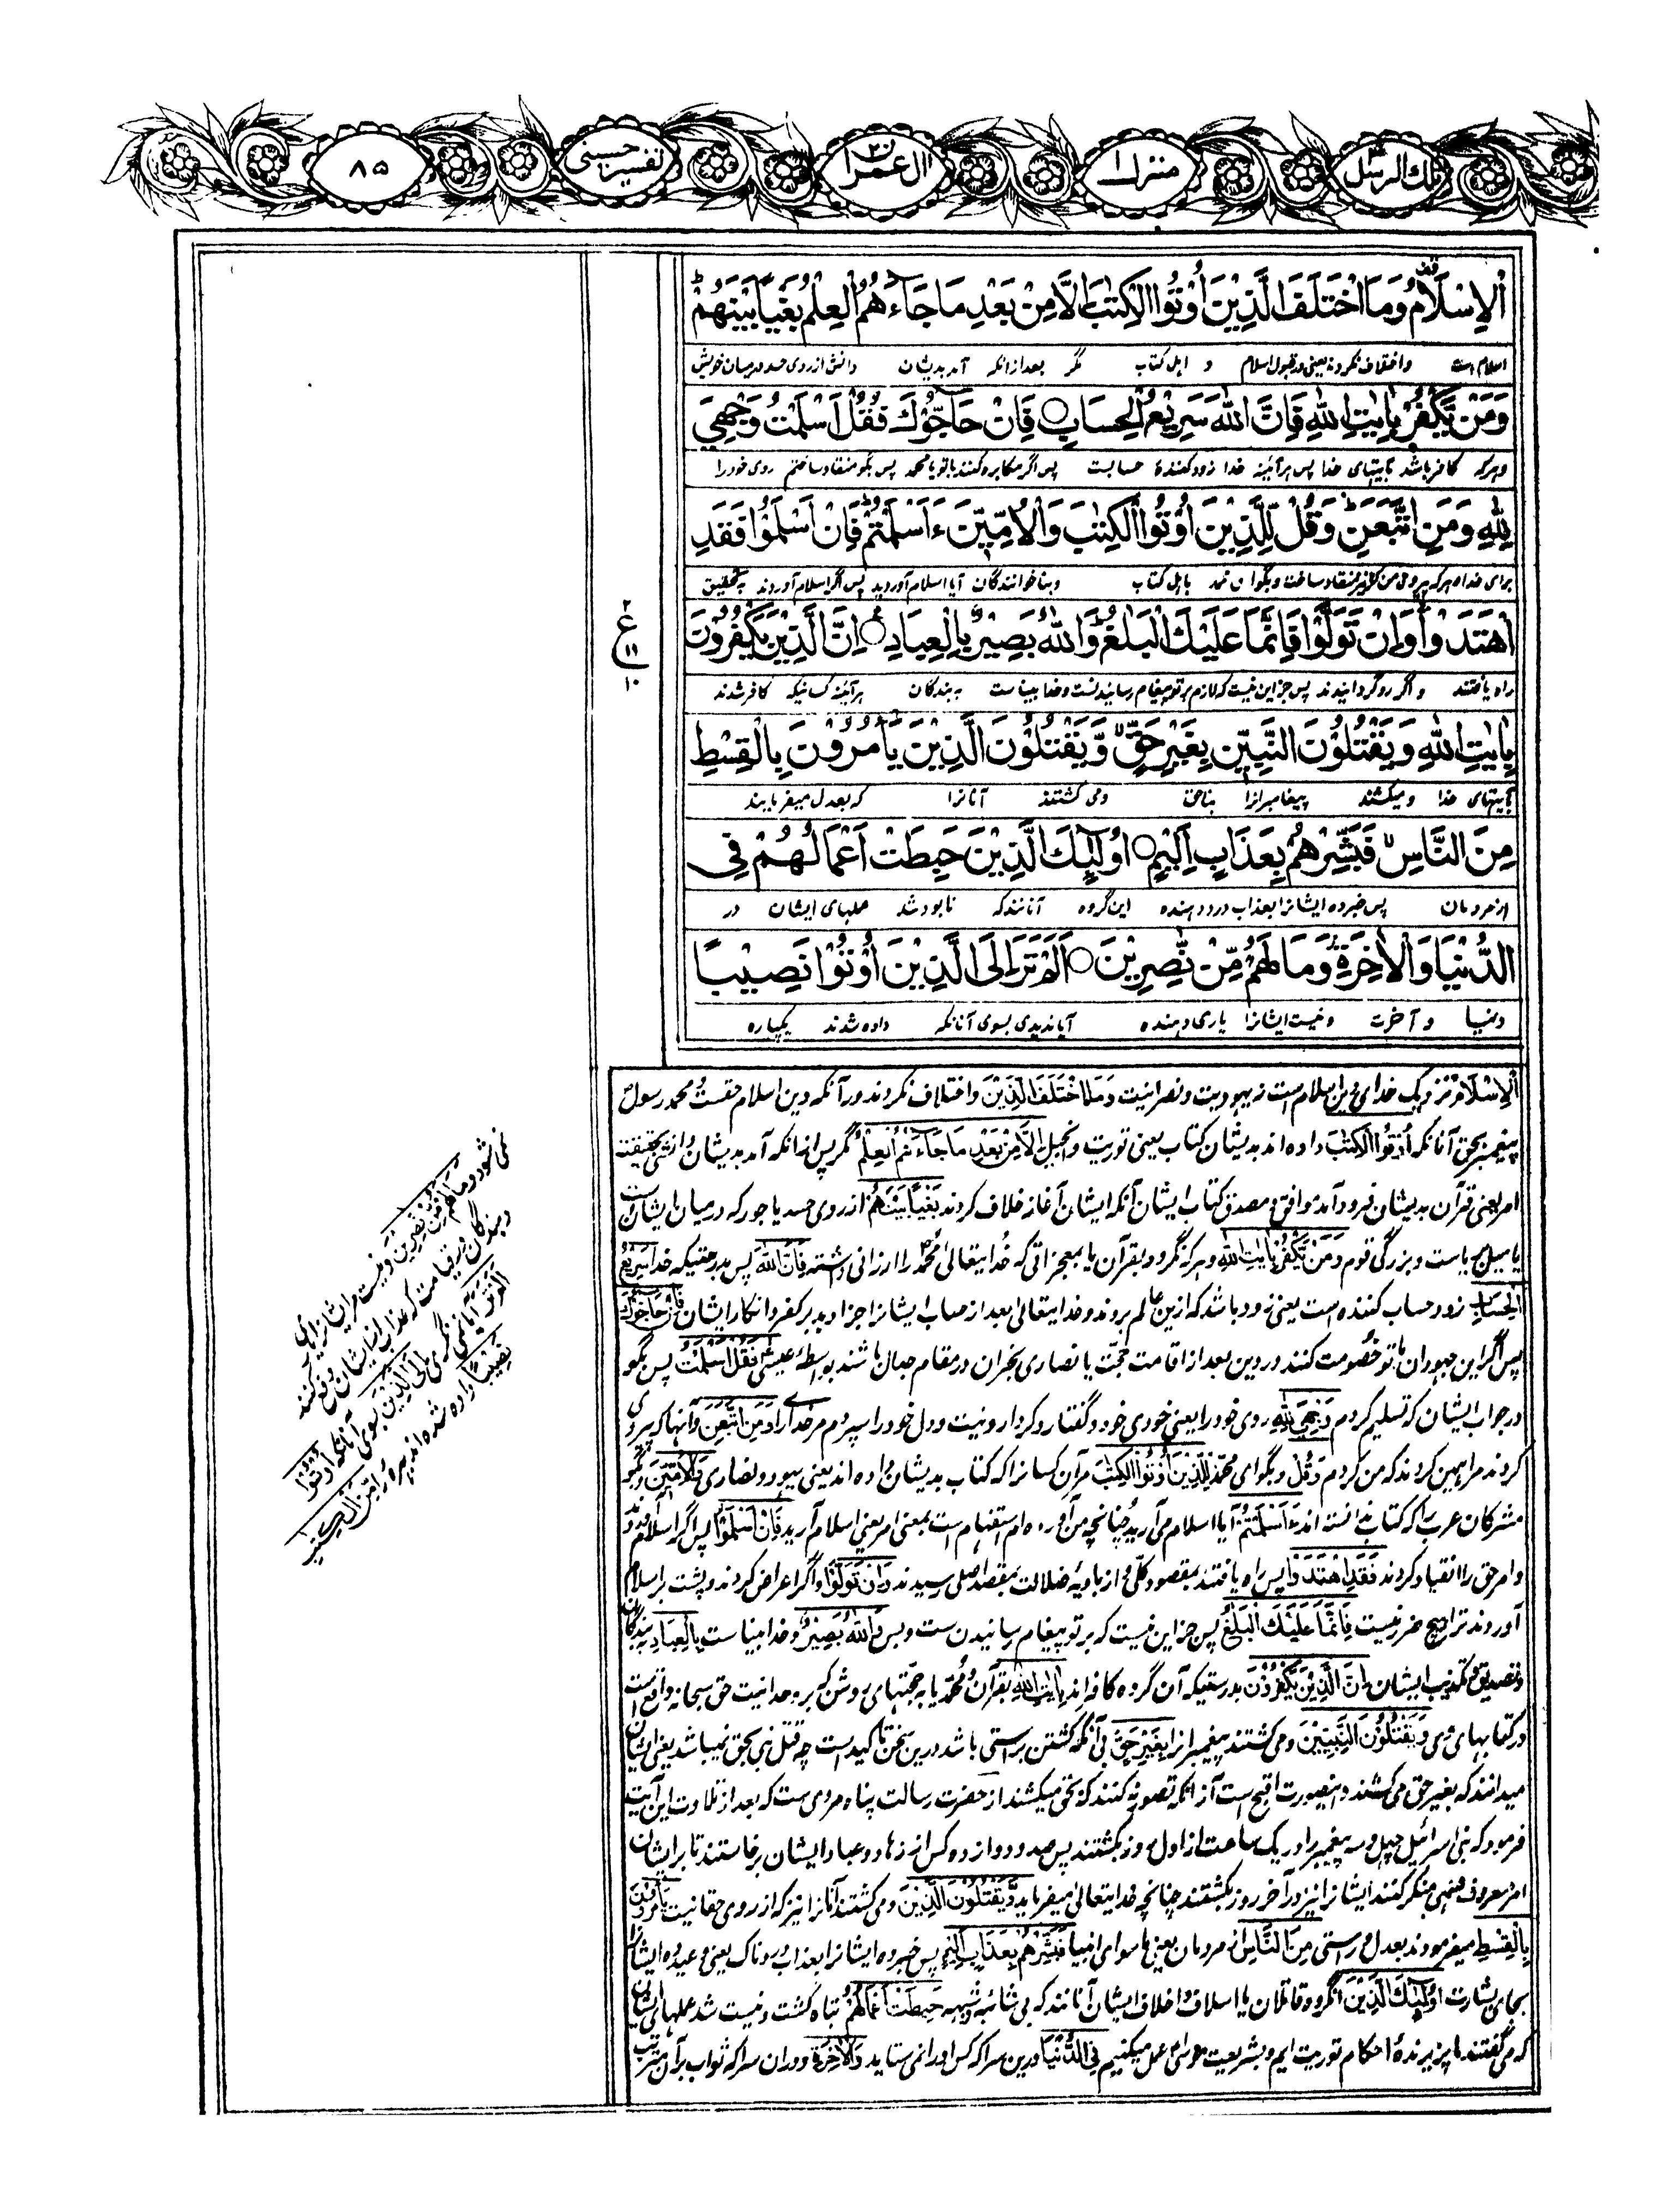 تلك الرسل ۳
منزل ۱
ال عمران ۳
تفسیر حسینی
۸۵
الْاِسْلَامُ وَمَا اخْتَلَفَ الَّذِيْنَ اُوْتُوا الْكِتٰبَ اِلَّا مِنْ بَعْدِ مَا جَآءَهُمُ الْعِلْمُ بَغْيًا بَيْنَهُمْ
اسلام است واختلاف نکردند یعنی در قبول اسلام و اہل کتاب مگر بعد از انکہ آمد بدیشان دانش از روی حسد درمیان خویش
وَمَنْ يَّكْفُرْ بِاٰيٰتِ اللّٰهِ فَاِنَّ اللّٰهَ سَرِيْعُ الْحِسَابِ ○ فَاِنْ حَآجُّوْكَ فَقُلْ اَسْلَمْتُ وَجْهِيَ
وہرکہ کافر باشد بآیتہای خدا پس ہرآئینہ خدا زود کنندۂ حسابست پس اگر مکابرہ کنند با تو یا محمد پس بگو منقاد ساختم روی خود را
لِلّٰهِ وَمَنِ اتَّبَعَنِ وَقُلْ لِّلَّذِيْنَ اُوْتُوا الْكِتٰبَ وَالْاُمِّيّٖنَ ءَاَسْلَمْتُمْ فَاِنْ اَسْلَمُوْا فَقَدِ
برای خدا و ہرکہ پیروی من کرد نیز منقاد ساخت وبگو ای محمد باہل کتاب وبناخوانندگان آیا اسلام آوردید پس اگر اسلام آوردند بہ تحقیق
اهْتَدَوْا وَاِنْ تَوَلَّوْا فَاِنَّمَا عَلَيْكَ الْبَلٰغُ وَاللّٰهُ بَصِيْرٌۢ بِالْعِبَادِ ○ اِنَّ الَّذِيْنَ يَكْفُرُوْنَ
راہ یافتند و اگر روگردانیدند پس جز این نیست کہ لازم بر تو پیغام رسانیدنست وخدا بیناست بہ بندگان ہرآئینہ کسانیکہ کافر شدند
بِاٰيٰتِ اللّٰهِ وَيَقْتُلُوْنَ النَّبِيّٖنَ بِغَيْرِ حَقٍّ وَّيَقْتُلُوْنَ الَّذِيْنَ يَاْمُرُوْنَ بِالْقِسْطِ
بآیتہای خدا ومیکشند پیغامبرانرا بناحق ومی کشتند آنانرا کہ بعدل میفرمایند
مِنَ النَّاسِ فَبَشِّرْهُمْ بِعَذَابٍ اَلِيْمٍ ○ اُولٰٓئِكَ الَّذِيْنَ حَبِطَتْ اَعْمَالُهُمْ فِي
از مردمان پس خبر دہ ایشانرا بعذاب درد دہندہ این گروہ آنانند کہ نابود شد عملہای ایشان در
الدُّنْيَا وَالْاٰخِرَةِ وَمَا لَهُمْ مِّنْ نّٰصِرِيْنَ ○ اَلَمْ تَرَ اِلَى الَّذِيْنَ اُوْتُوْا نَصِيْبًا
دنیا و آخرت ونیست ایشانرا یاری دہندہ آیا ندیدی بسوی آنانکہ دادہ شدند یکپارہ
ع
۲
۱۱
۱۰
الْاِسْلَامُ نزدیک خدای دین اسلام است نہ یہودیت ونصرانیت وَمَا اخْتَلَفَ الَّذِيْنَ واختلاف نکردند در آنکہ دین اسلام حقست ومحمد رسول
پیغمبر بحق آنانکہ اُوْتُوا الْكِتٰبَ دادہ اند بدیشان کتاب یعنی توریت وانجیل اِلَّا مِنْ بَعْدِ مَا جَآءَهُمُ الْعِلْمُ مگر پس از انکہ آمد بدیشان دانش بحقیقت
امر یعنی قرآن بدیشان فرود آمد موافق ومصدق کتاب ایشان آنکہ ایشان آغاز خلاف کردند بَغْيًا بَيْنَهُمْ از روی حسد یا جور کہ درمیان ایشان است
یا بطلب ریاست وبزرگی قوم وَمَنْ يَّكْفُرْ بِاٰيٰتِ اللّٰهِ وہرکہ نگرود بقرآن یا بمعجزاتی کہ خدایتعالی محمد را ارزانی داشتہ فَاِنَّ اللّٰهَ پس بدرستیکہ خدا سَرِيْعُ
الْحِسَابِ زود حساب کنندہ است یعنی زود باشد کہ ازین عالم بروند وخدایتعالی بعد از حساب ایشانرا جزا دہد بر کفر وانکار ایشان فَاِنْ حَآجُّوْكَ
پس اگر این جہودان با تو خصومت کنند در دین بعد از اقامت حجت یا نصاری نجران در مقام جدال باشند بواسطۂ عیسی فَقُلْ اَسْلَمْتُ پس بگو
در جواب ایشان کہ تسلیم کردم وَجْهِيَ لِلّٰهِ روی خود را یعنی خودی خود وگفتار وکردار ونیت ودل خود را سپردم مر خدای را وَمَنِ اتَّبَعَنِ وآنہا کہ پیروی
کردند مرا ہمین کردند کہ من کردم وَقُلْ وبگو ای محمد لِلَّذِيْنَ اُوْتُوا الْكِتٰبَ مر آن کسانرا کہ کتاب بدیشان دادہ اند یعنی یہود ونصاری وَالْاُمِّيّٖنَ وبگو
مشرکان عرب را کہ کتاب ندانستہ اند ءَاَسْلَمْتُمْ آیا اسلام می آرید چنانچہ من آوردہ ام استفہام است بمعنی امر یعنی اسلام آرید فَاِنْ اَسْلَمُوْا پس اگر اسلام آوردند
وامر حق را انقیاد کردند فَقَدِ اهْتَدَوْا پس راہ یافتند بمقصود کلی واز بادیۂ ضلالت بمقصد اصلی رسیدند وَاِنْ تَوَلَّوْا واگر اعراض کردند وپشت بر اسلام
آوردند ترا ہیچ ضرر نیست فَاِنَّمَا عَلَيْكَ الْبَلٰغُ پس جز این نیست کہ بر تو پیغام رسانیدن ست وبس وَاللّٰهُ بَصِيْرٌ وخدا بیناست بِالْعِبَادِ بہ بندگان
وتصدیق وتکذیب ایشان اِنَّ الَّذِيْنَ يَكْفُرُوْنَ بدرستیکہ آن گروہ کافراند بِاٰيٰتِ اللّٰهِ بقرآن ومحمد یا بحجتہای روشن کہ بر وحدانیت حق سبحانہ واقع است
در کتابہای وی وَيَقْتُلُوْنَ النَّبِيّٖنَ ومی کشتند پیغمبرانرا بِغَيْرِ حَقٍّ بی آنکہ کشتن براستی باشد درین سخن تاکید است چہ قتل نبی بحق نمیباشد یعنی ایشان
میدانند کہ بغیر حق می کشند واینصورت اقبح است از آنکہ تصور کنند کہ بحق میکشند از حضرت رسالت پناہ مروی ست کہ بعد از تلاوت این آیت
فرمود کہ بنی اسرائیل چہل وسہ پیغمبر را در یک ساعت از اول روز بکشتند پس صد ودوازدہ کس از زہاد وعباد ایشان برخاستند تا بر ایشان
امر معروف ونہی منکر کنند ایشانرا نیز در آخر روز بکشتند چنانچہ خدایتعالی میفرماید وَّيَقْتُلُوْنَ الَّذِيْنَ ومی کشتند آنانرا نیز کہ از روی حقانیت يَاْمُرُوْنَ
بِالْقِسْطِ میفرمودند بعدل وراستی مِنَ النَّاسِ از مردمان یعنی ماسوای انبیا فَبَشِّرْهُمْ بِعَذَابٍ اَلِيْمٍ پس خبر دہ ایشانرا بعذاب دردناک یعنی وعید دہ ایشانرا
بجای بشارت اُولٰٓئِكَ الَّذِيْنَ آن گروہ قاتلان یا اسلاف واخلاف ایشان آنانند کہ بی شائبہ وشبہہ حَبِطَتْ اَعْمَالُهُمْ تباہ گشت ونیست شد عملہای ایشان
کہ می گفتند ما پذیرندۂ احکام توریت ایم وبشریعت موسی عمل میکنیم فِي الدُّنْيَا درین سرا کہ کس اورا نمی ستاید وَالْاٰخِرَةِ ودران سرا کہ ثواب برآن مترتب
نمی شود وَمَا لَهُمْ مِّنْ نّٰصِرِيْنَ ونیست مر ایشانرا یاری
دہندگان در قیامت کہ عذاب از ایشان دفع کنند
اَلَمْ تَرَ آیا نمی نگری اِلَى الَّذِيْنَ بسوی آنانکہ اُوْتُوْا
نَصِيْبًا دادہ شدہ اند بہرہ را مِنَ الْكِتٰبِ